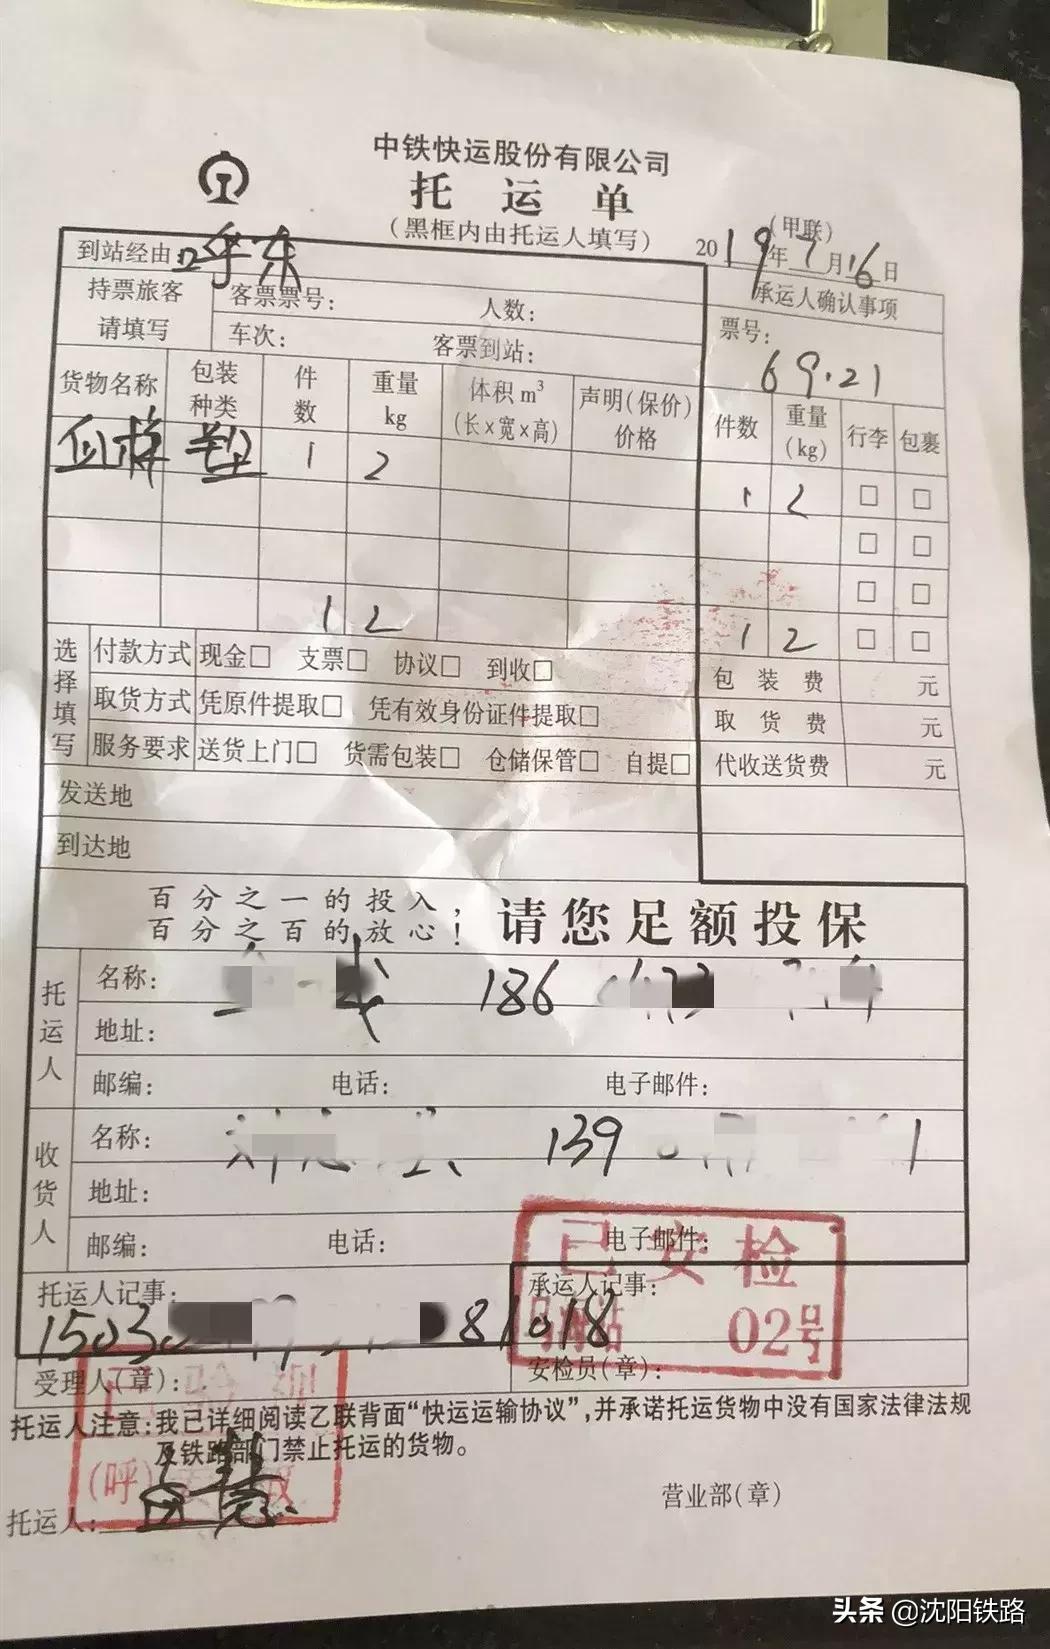 中铁快运股份有限公司
托运单
(黑框内由托运人填写)
(甲联)
2019年7月16日
到站经由:呼东
承运人确认事项
持票旅客
请填写
客票票号: 人数:
车次: 客票到站:
票号:
69.21
货物名称 包装种类 件数 重量kg 体积m³(长×宽×高) 声明(保价)价格 件数 重量(kg) 行李 包裹
血样 塑 1 2 1 2 □ □
□ □
□ □
1 2 1 2 □ □
选择填写
付款方式 现金□ 支票□ 协议□ 到收□ 包装费 元
取货方式 凭原件提取□ 凭有效身份证件提取□ 取货费 元
服务要求 送货上门□ 货需包装□ 仓储保管□ 自提□ 代收送货费 元
发送地
到达地
百分之一的投入,
百分之百的放心!
请您足额投保
托运人
名称: 186
地址:
邮编: 电话: 电子邮件:
收货人
名称: 139 1
地址:
邮编: 电话: 电子邮件:
已安检
02号
托运人记事: 承运人记事:
15030 81018
受理人(章): 安检员(章):
托运人注意:我已详细阅读乙联背面“快运运输协议”,并承诺托运货物中没有国家法律法规
及铁路部门禁止托运的货物。
(呼)
营业部(章)
托运人:
头条 @沈阳铁路